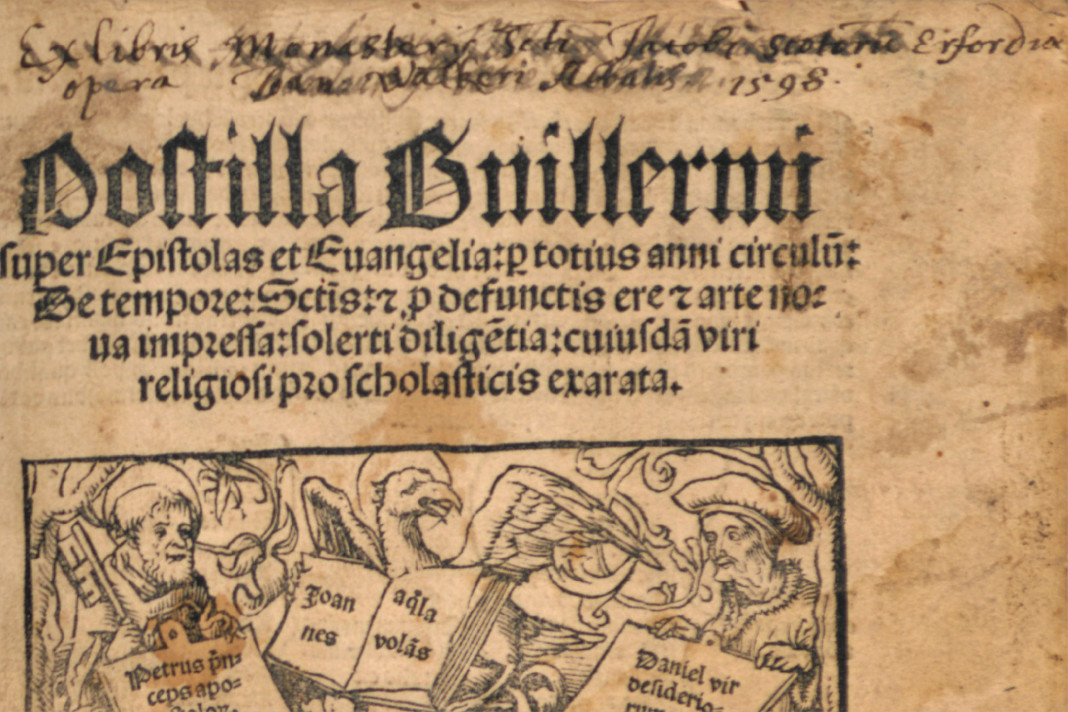 Ex libris Monasterij Scti Jacobi Scotorum Erfordiæ
opera Dani Walteri Abbatis 1598.
Postilla Guillermi
super Epistolas et Euangelia: ꝑ totius anni circulū:
De tempore: Sctīs: ⁊ ꝓ defunctis ere ⁊ arte no:
ua impressa: solerti diligētia: cuiusdā viri
religiosi pro scholasticis exarata.
Joan
nes
aq̄la
volās
Petrus p̄n:
ceps apo:
Daniel vir
desiderio: